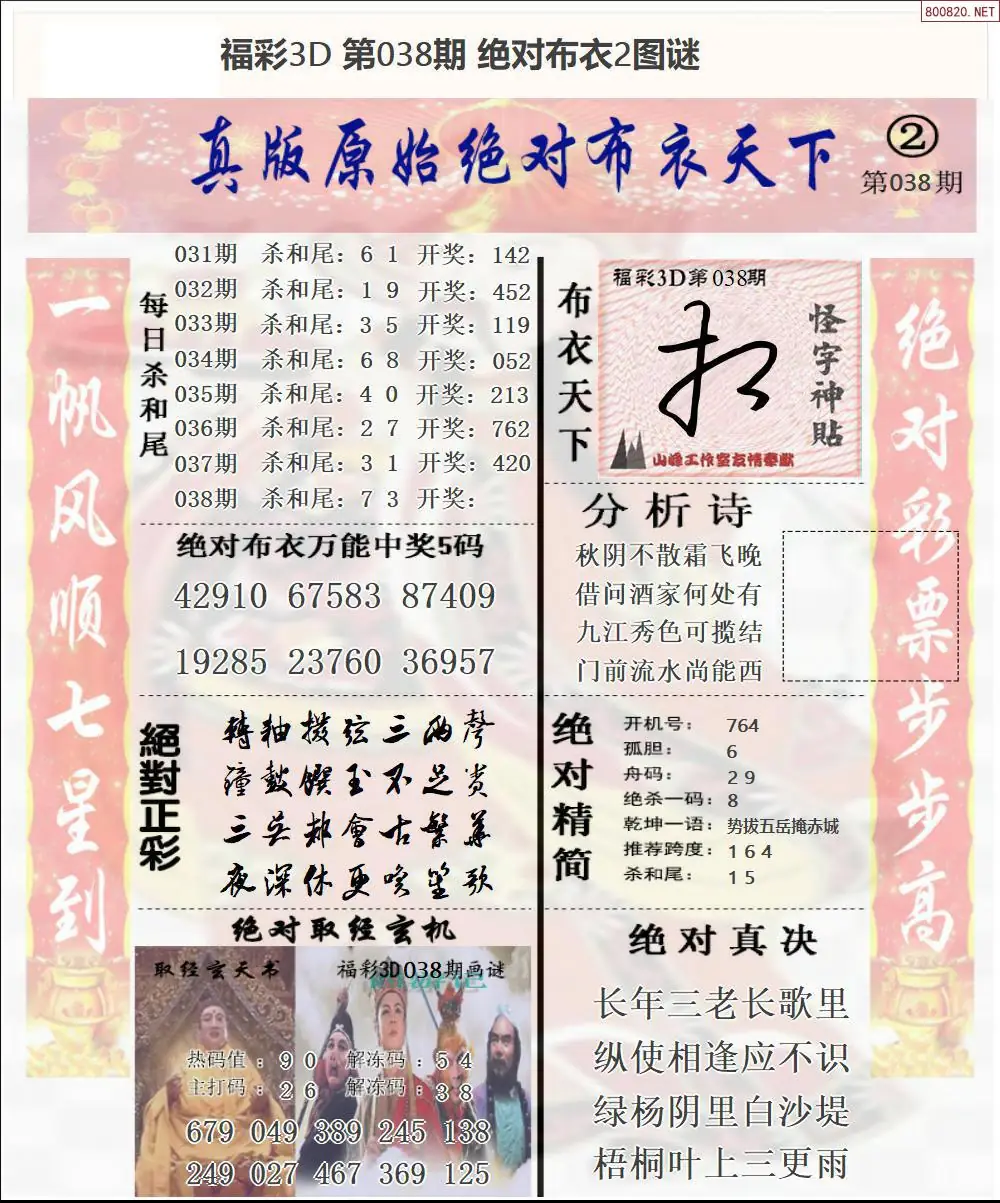 800820.NET
福彩3D 第038期 绝对布衣2图谜
真版原始绝对布衣天下
②
第038期
一帆风顺七星到
每日杀和尾
031期 杀和尾：6 1 开奖：142
032期 杀和尾：1 9 开奖：452
033期 杀和尾：3 5 开奖：119
034期 杀和尾：6 8 开奖：052
035期 杀和尾：4 0 开奖：213
036期 杀和尾：2 7 开奖：762
037期 杀和尾：3 1 开奖：420
038期 杀和尾：7 3 开奖：
绝对布衣万能中奖5码
42910 67583 87409
19285 23760 36957
絕對正彩
轉軸撥弦三兩聲
鐘鼓饌玉不足贵
三吴都會古繁華
夜深休更唤笙歌
绝对取经玄机
取经玄天书
福彩3D038期画谜
热码值：9 0 解冻码：5 4
主打码：2 6 解冻码：3 8
679 049 389 245 138
249 027 467 369 125
布衣天下
福彩3D第038期
怪字神貼
山峰工作室友情奉献
分析诗
秋阴不散霜飞晚
借问酒家何处有
九江秀色可揽结
门前流水尚能西
绝对精简
开机号：764
孤胆：6
舟码：2 9
绝杀一码：8
乾坤一语：势拔五岳掩赤城
推荐跨度：1 6 4
杀和尾：1 5
绝对真决
长年三老长歌里
纵使相逢应不识
绿杨阴里白沙堤
梧桐叶上三更雨
绝对彩票步步高